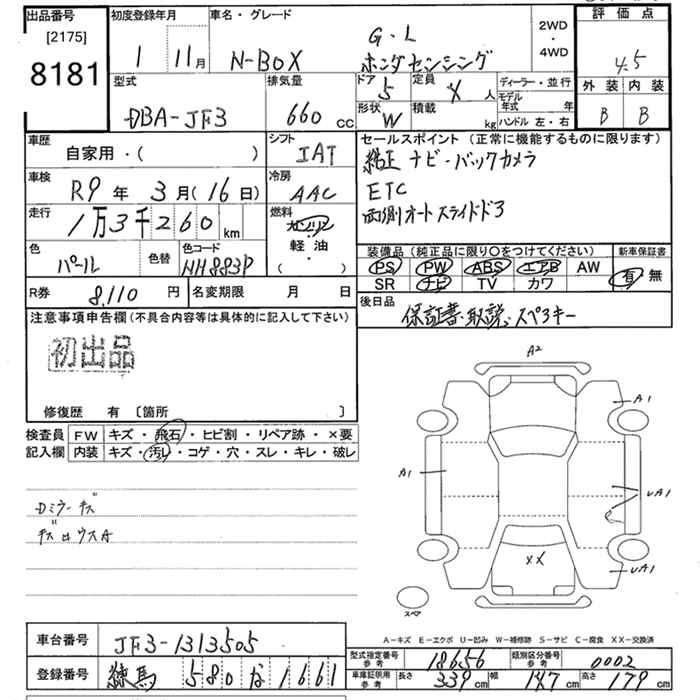 出品番号
[2175]
8181
初度登録年月
1 11月
車名・グレード
N-BOX
G・L
ホンダセンシング
2WD
・
4WD
評価点
4.5
外装 内装
B B
型式
DBA-JF3
排気量
660 cc
ドア 5
定員 4 人
形状 W
積載 kg
ディーラー・並行
モデル年式 年
ハンドル 左・右
車歴
自家用・( )
シフト
IAT
車検
R9 年 3 月(16 日)
冷房
AAC
走行
1万3千260 km
燃料
ガソリン
軽油
・( )
色
パール
色替
色コード
NH883P
R券 8,110 円
名変期限 月 日
セールスポイント(正常に機能するものに限ります)
純正ナビ・バックカメラ
ETC
両側オートスライドドア
装備品(純正品に限り〇をつけてください)
PS PW ABS エアB AW
SR ナビ TV カワ
新車保証書
有 無
後日品
保証書・取説、スペアキー
注意事項申告欄(不具合内容等は具体的に記入して下さい)
初出品
修復歴 有 〔箇所 〕
検査員 FW キズ・飛石・ヒビ割・リペア跡・×要
記入欄 内装 キズ・汚レ・コゲ・穴・スレ・キレ・破レ
Dミラーキズ
A2
A1
A1
UA1
XX
UA1
スペア
A-キズ E-エクボ U-凹み W-補修跡 S-サビ C-腐食 XX-交換済
車台番号 JF3-1313505
登録番号 練馬 580 な 1661
型式指定番号 参考 18656
類別区分番号 参考 0002
車庫証明用 参考 長さ 339 cm 幅 147 cm 高さ 179 cm